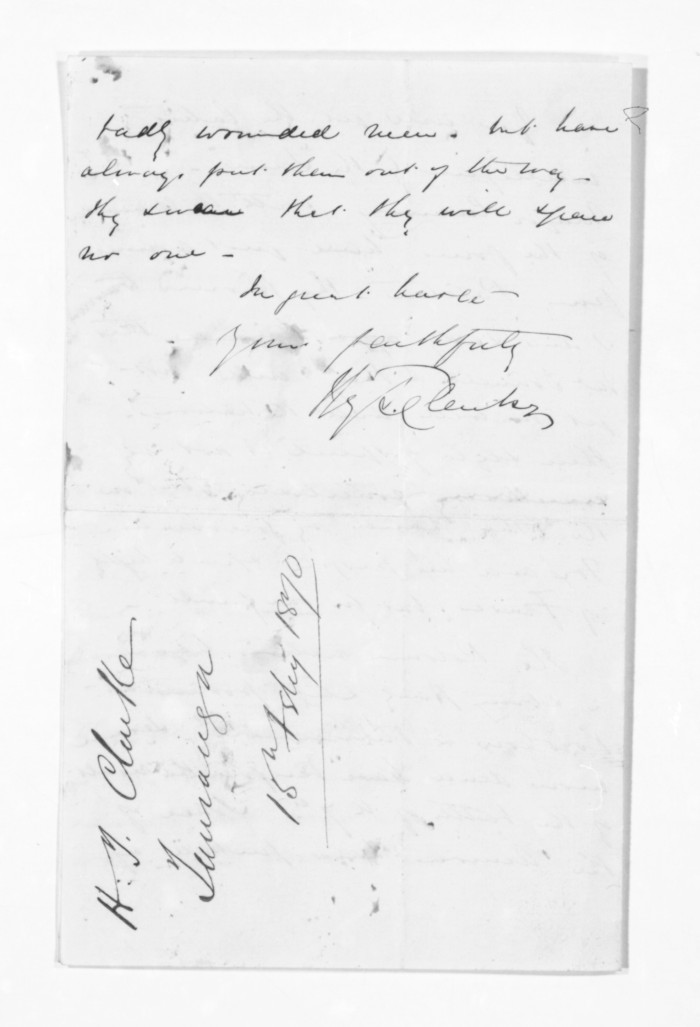 badly wounded men. but have
always put them out of the way -
they swear that they will spare
no one -
In great haste
Yours faithfully
Hy T. Clarke
H. T. Clarke
Tauranga
15th Feby 1870